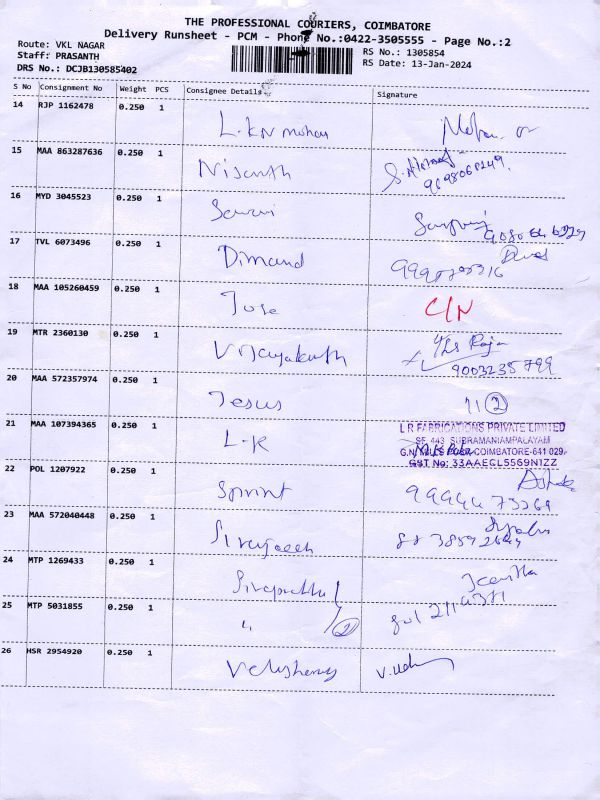 THE PROFESSIONAL COURIERS, COIMBATORE
Delivery Runsheet - PCM - Phone No.:0422-3505555 - Page No.:2
Route: VKL NAGAR
Staff: PRASANTH
DRS No.: DCJB130585402
RS No.: 1305854
RS Date: 13-Jan-2024
S No Consignment No Weight PCS Consignee Details Signature
14 RJP 1162478 0.250 1 L.KN mohan Mohan
15 MAA 863287636 0.250 1 Nisanth
16 MYD 3045523 0.250 1
17 TVL 6073496 0.250 1 Dimand
18 MAA 105260459 0.250 1 Jose C/N
19 MTR 2360130 0.250 1 Vijayakanth Raja
9003235799
20 MAA 572357974 0.250 1 Jesus 11 2
21 MAA 107394365 0.250 1 L-K
L R FABRICATIONS PRIVATE LIMITED
SF. 443 SUBRAMANIAMPALAYAM
G.N. MILLS COIMBATORE-641 029.
GST No: 33AAECL5569N1ZZ
22 POL 1207922 0.250 1 Sprint Ashok
23 MAA 572040448 0.250 1
24 MTP 1269433 0.250 1
25 MTP 5031855 0.250 1 " 2
26 HSR 2954920 0.250 1